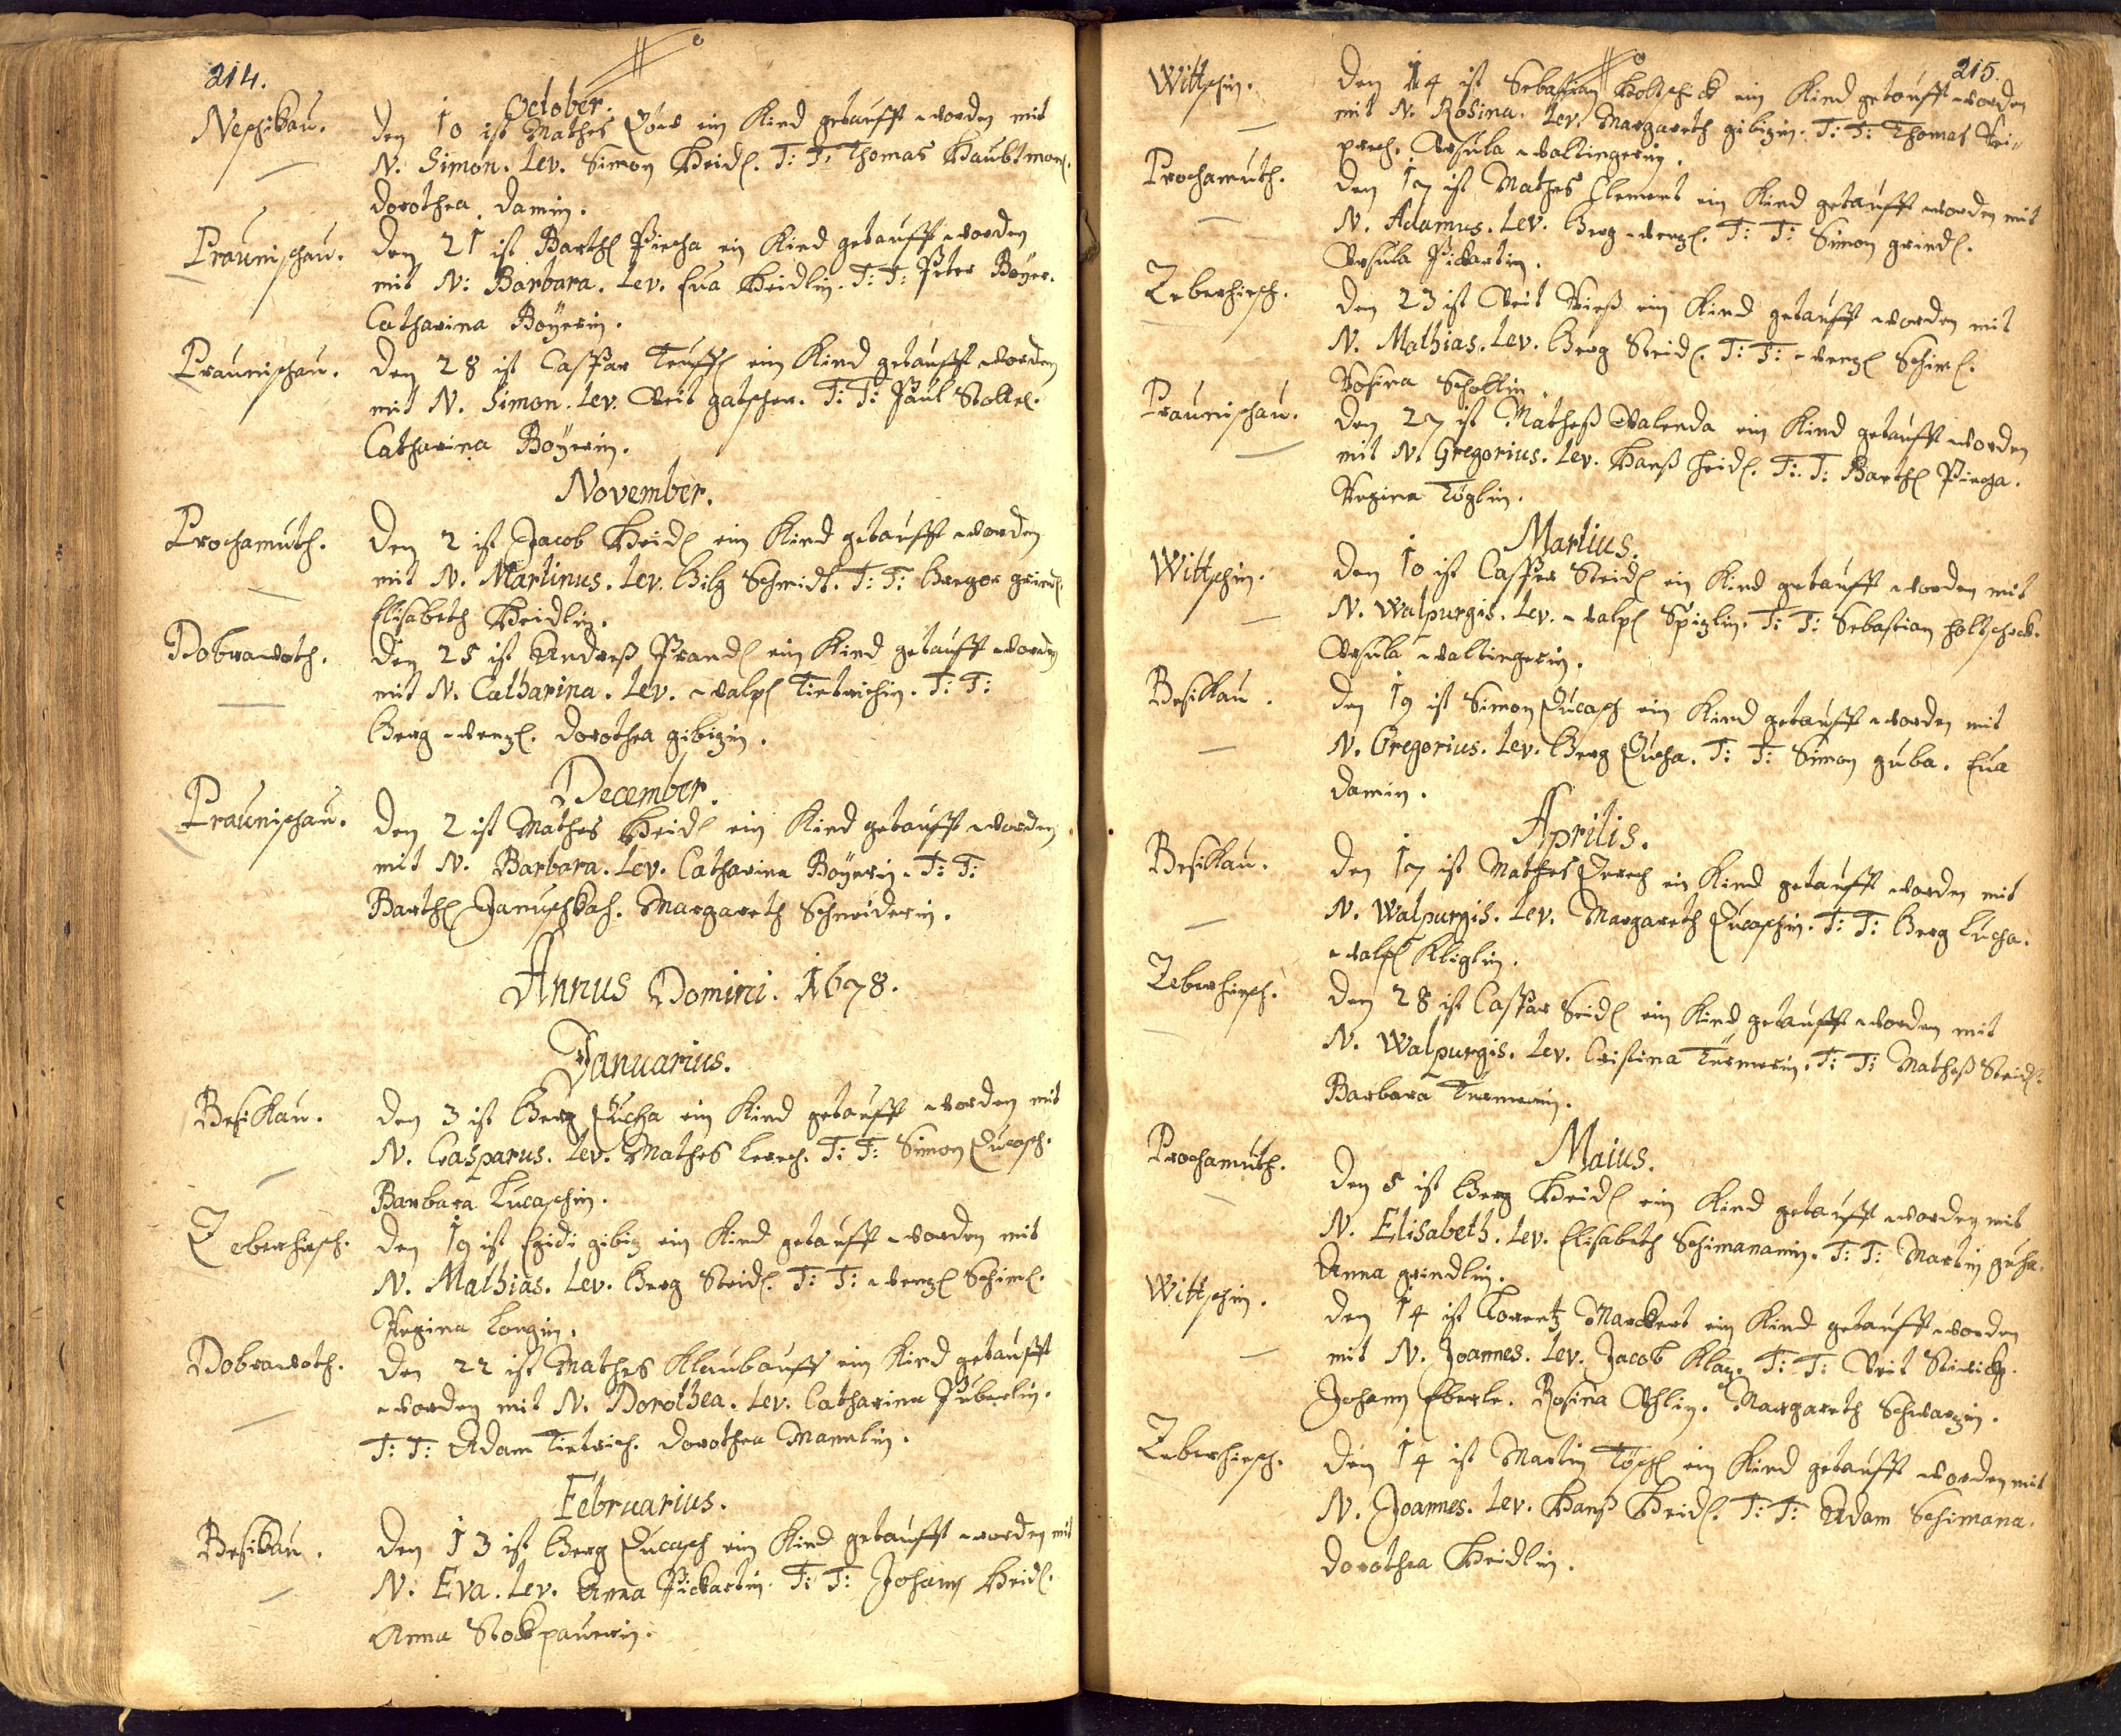 214.
October.
Neschikau. Den 10 ist Mathes ein Kind getaufft worden mit
N. Simon. Lev. Simon Heidl. T: T: Thomas Haubtman.
Dorothea Damin.
Praunischau. Den 21 ist Barthl Piecha ein Kind getaufft worden
mit N: Barbara. Lev. Eua Heidlin. T: T: Peter Böyer.
Catharina Böyerin.
Praunischau. Den 28 ist Casspar Teuffl ein Kind getaufft worden
mit N. Simon. Lev. Veit gatscher. T: T: Paul Stolle.
Catharina Böyerin.
November.
Prochamuth. Den 2 ist Jacob Heidl ein Kind getaufft worden
mit N. Martinus. Lev. Hilg Schmidt. T: T: Gregor griedl.
Elisabeth Heidlin.
Dobrawoth. Den 25 ist Andreß Prandl ein Kind getaufft worden
mit N. Catharina. Lev. walpl Tietrichin. T: T:
Georg wenzl. Dorothea gibizin.
December.
Praunischau. Den 2 ist Mathes Heidl ein Kind getaufft worden
mit N. Barbara. Lev. Catharina Böyerin. T: T:
Barthl Januschkah. Margareth Schneiderin.
Annus Domini. 1678.
Januarius.
Besikau. Den 3 ist Georg Lucha ein Kind getaufft worden mit
N. Casparus. Lev. Mathes Lerch. T: T: Simon Lucasch.
Barbara Lucaschin.
Zeberhirsch. Den 19 ist Egidi gibiz ein Kind getaufft worden mit
N. Mathias. Lev. Georg Steidl. T: T: wenzl Schierl.
Regina Longin.
Dobrawoth. Den 22 ist Mathes Klaubauff ein Kind getaufft
worden mit N. Dorothea. Lev. Catharina
T: T: Adam Tietrich. Dorothea Mannlin.
Februarius.
Besikau. Den 13 ist Georg Lucasch ein Kind getaufft worden mit
N. Eva. Lev. Anna Pickartin. T: T: Johann Heidl.
Anna Stockpaurin.
215.
Wittschin. Den 14 ist Sebastian Holtscheck ein Kind getaufft worden
mit N. Rosina. Lev. Margareth gibizin. T: T: Thomas
Vrsula waltingerin.
Prochamuth. Den 17 ist Mathes Clement ein Kind getaufft worden mit
N. Adamus. Lev. Georg wenzl. T: T: Simon griedl.
Vrsula Pickartin.
Zeberhirsch. Den 23 ist Veit Rieß ein Kind getaufft worden mit
N. Mathias. Lev. Georg Steidl. T: T: wenzl Schierl.
Rosina Schollin.
Praunischau. Den 27 ist Matheß Walenda ein Kind getaufft worden
mit N. Gregorius. Lev. Hanß Heidl. T: T: Barthl Piecha.
Regina Töglin.
Martius.
Wittschin. Den 10 ist Casper Steidl ein Kind getaufft worden mit
N. Walpurgis. Lev. walpl Spizlin. T: T: Sebastian Holtscheck.
Vrsula waltingerin.
Besikau. Den 19 ist Simon Lucasch ein Kind getaufft worden mit
N. Gregorius. Lev. Georg Lucha. T: T: Simon guba. Eua
Damin.
Aprilis.
Besikau. Den 17 ist Mathes Lerch ein Kind getaufft worden mit
N. Walpurgis. Lev. Margareth Lucaschin. T: T: Georg Lucha.
walpl Kliglin.
Zeberhirsch. Den 28 ist Casspar Seidl ein Kind getaufft worden mit
N. Walpurgis. Lev. Cristina Türmerin. T: T: Matheß Steidl.
Barbara Türmerin.
Maius.
Prochamuth. Den 5 ist Georg Heidl ein Kind getaufft worden mit
N. Elisabeth. Lev. Elisabeth Schimanamin. T: T: Martin guha.
Anna griedlin.
Wittschin. Den 14 ist Lorentz Marckert ein Kind getaufft worden
mit N. Joannes. Lev. Jacob Klaz. T: T: Veit
Johann Eberle. Rosina Vhlin. Margareth Schwarzin.
Zeberhirsch. Den 14 ist Martin Töschl ein Kind getaufft worden mit
N. Joannes. Lev. Hanß Heidl. T: T: Adam Schimana.
Dorothea Heidlin.